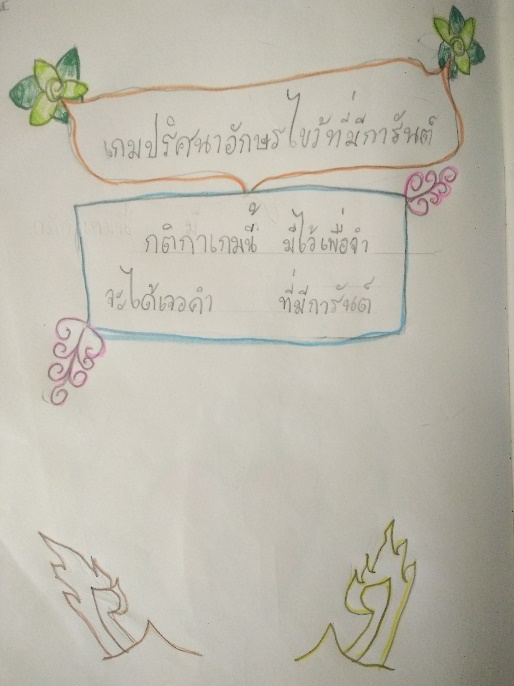 เกมปริศนาอักษรไขว้ที่มีการันต์
กติกาเกมนี้ มีไว้เพื่อจำ
จะได้เจอคำ ที่มีการันต์